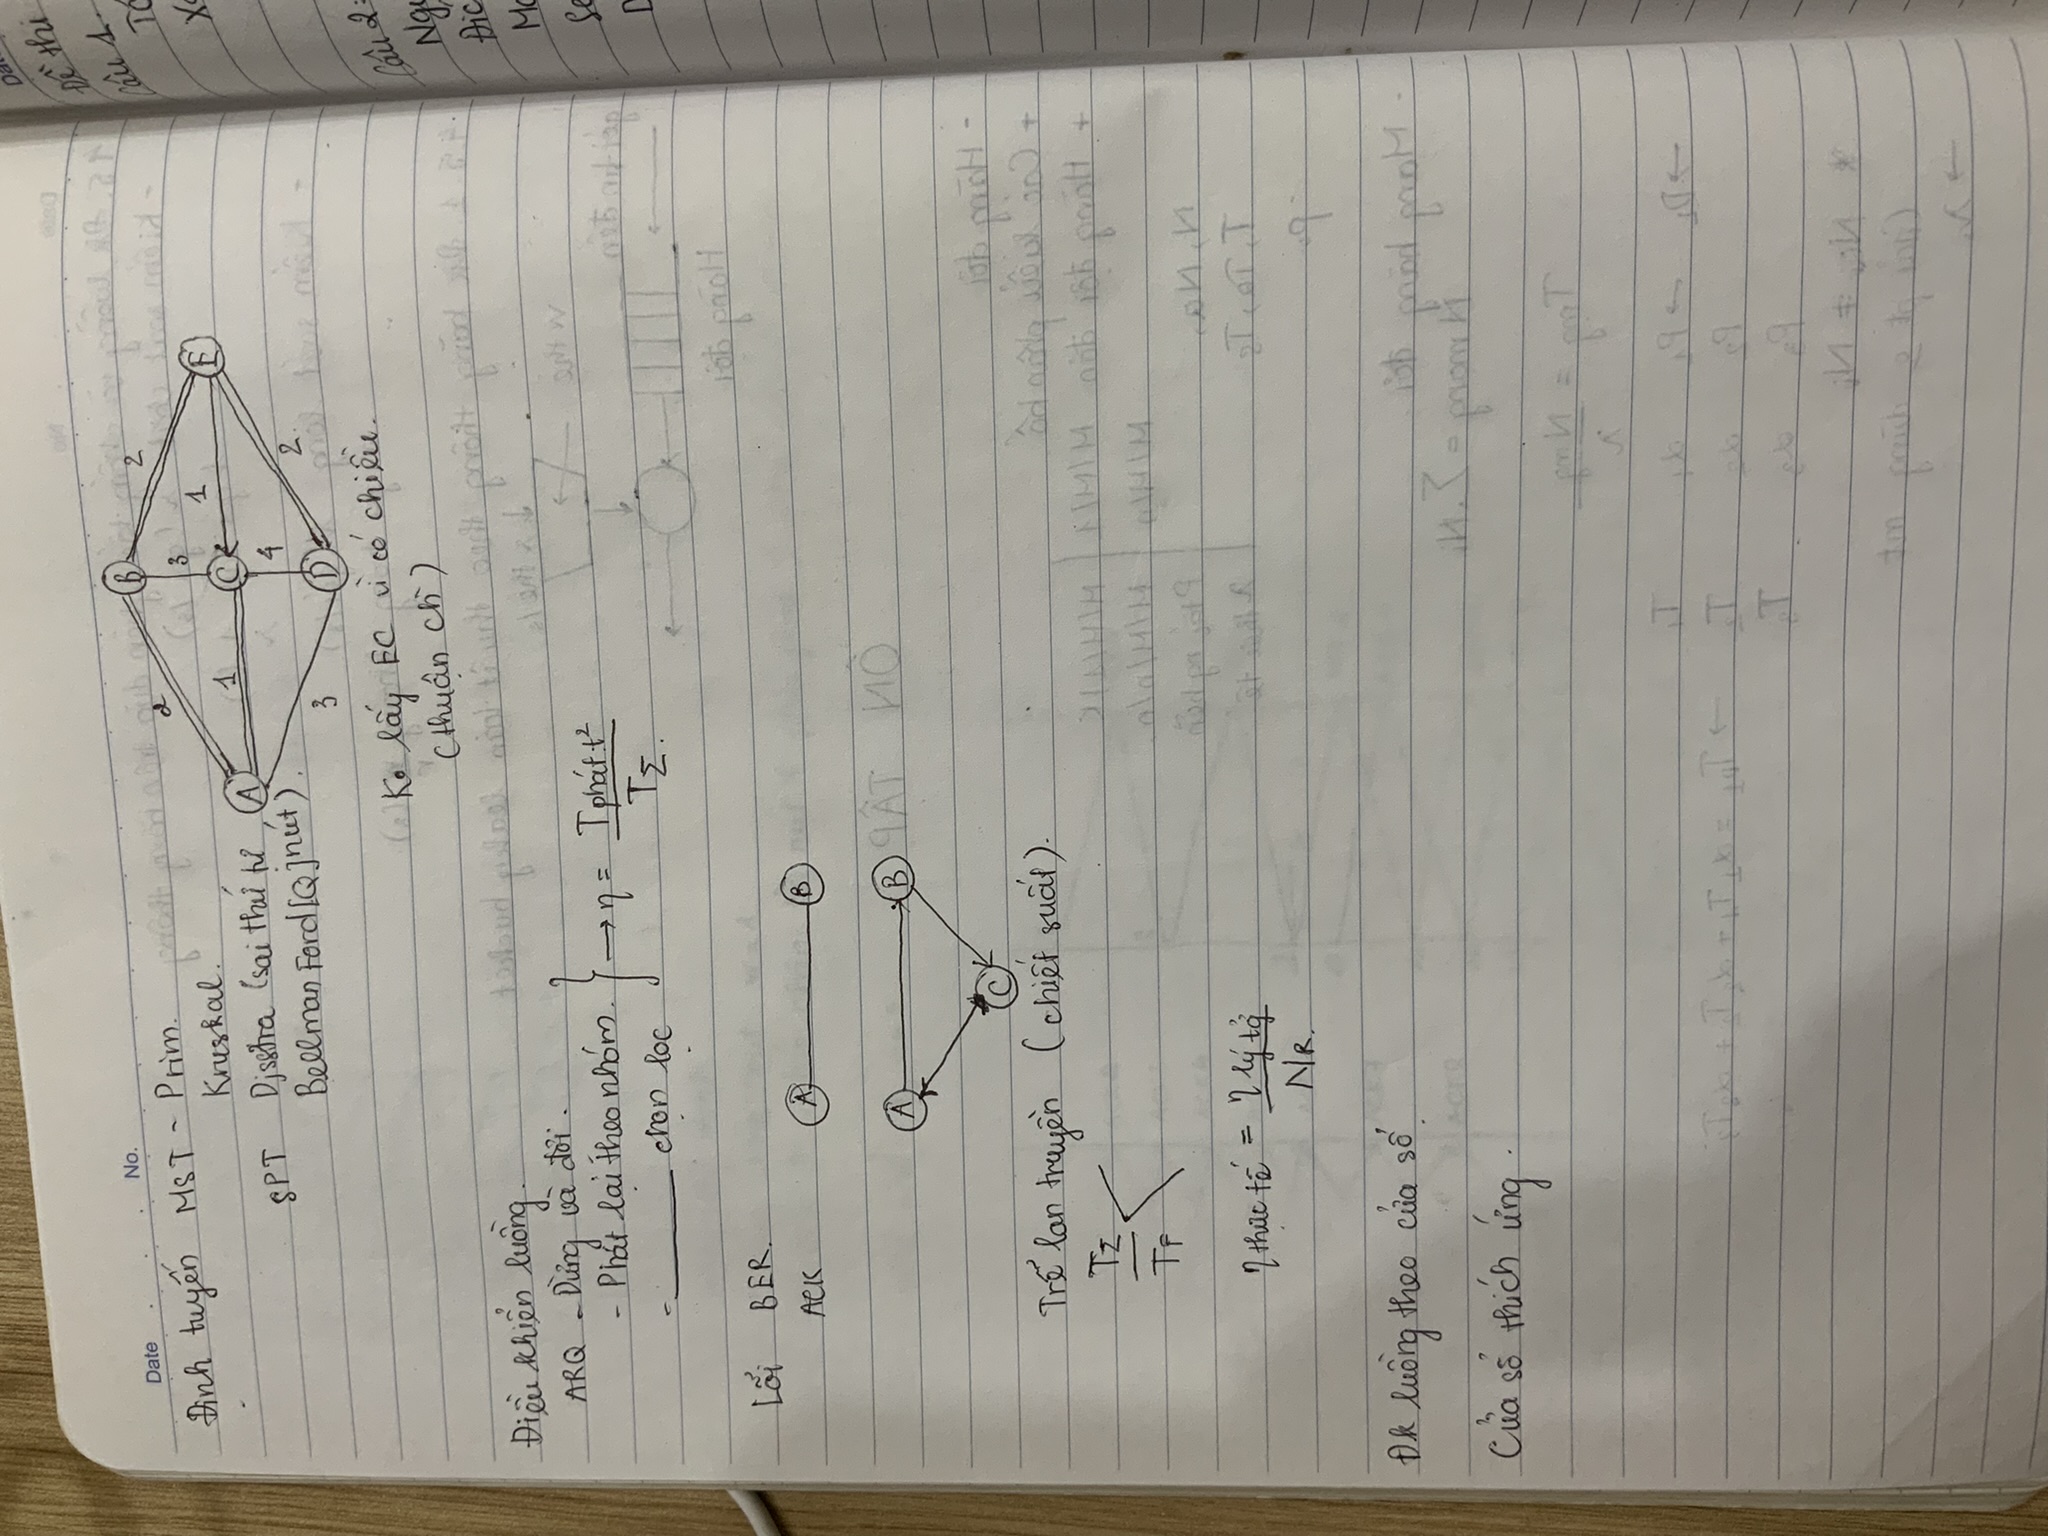 Date No.
Định tuyến MST - Prim.
Kruskal.
SPT Djsstra (sai thứ tự
Bellman Ford [Q] nút).
B
2
2
3
1
E
A
1
C
4
2.
3
D
Ko lấy EC vì có chiều.
(thuận chỉ)
Điều khiển luồng.
ARQ - Dừng và đợi.
- Phát lại theo nhóm.
- ______ chọn lọc
→ η = Tphát t²
TΣ.
Lỗi BER.
ACK
A B
A B
C
Trễ lan truyền (chiết suất).
TΣ
TF
η thực tế = η lý tg̉
NR.
Đk luồng theo cửa sổ.
Cửa sổ thích ứng.
Đề thi
Câu 1.
Câu 2: